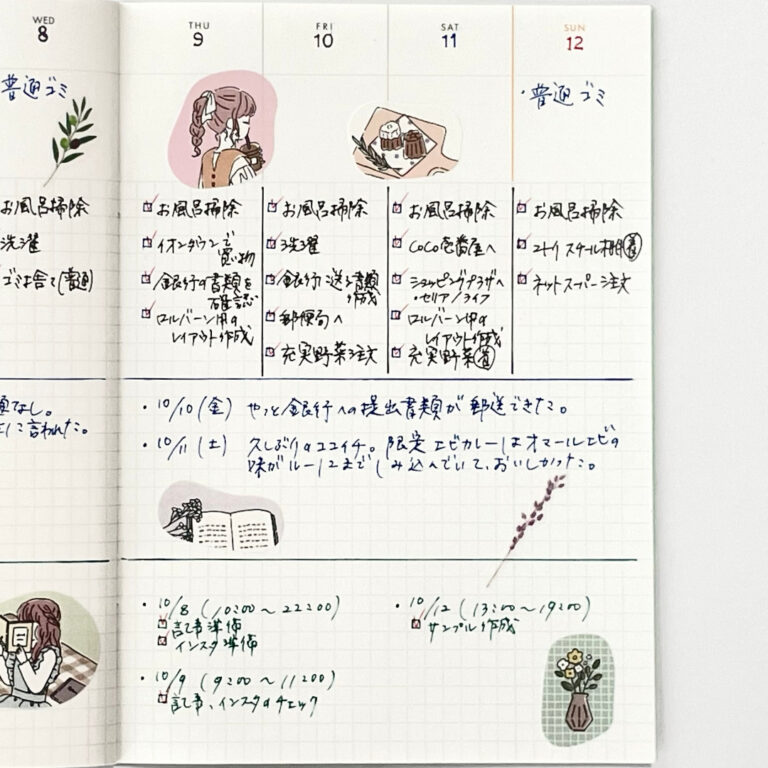 WED
8
THU
9
FRI
10
SAT
11
SUN
12
普通ゴミ
・普通ゴミ
お風呂掃除
洗濯
ゴミ捨て(普通)
お風呂掃除
イオンタウンで
買い物
銀行の書類を
確認
ロルバーン用の
レイアウト作成
お風呂掃除
洗濯
銀行に送る書類
作成
郵便局へ
充実野菜注文
お風呂掃除
CoCo壱番屋へ
ショッピングプラザへ
・セリア/ライフ
ロルバーン用の
レイアウト作成
充実野菜㊟
お風呂掃除
ネットスーパー注文
題なし。
に言われた。
・10/10(金) やっと銀行への提出書類が郵送できた。
・10/11(土) 久しぶりのココイチ。限定エビカレーはオマールエビの
味がルーにまでしみ込んでいて、おいしかった。
・10/8(10:00〜22:00)
記事準備
インスタ準備
・10/9(9:00〜11:00)
記事、インスタのチェック
・10/12(13:00〜19:00)
サンプル作成